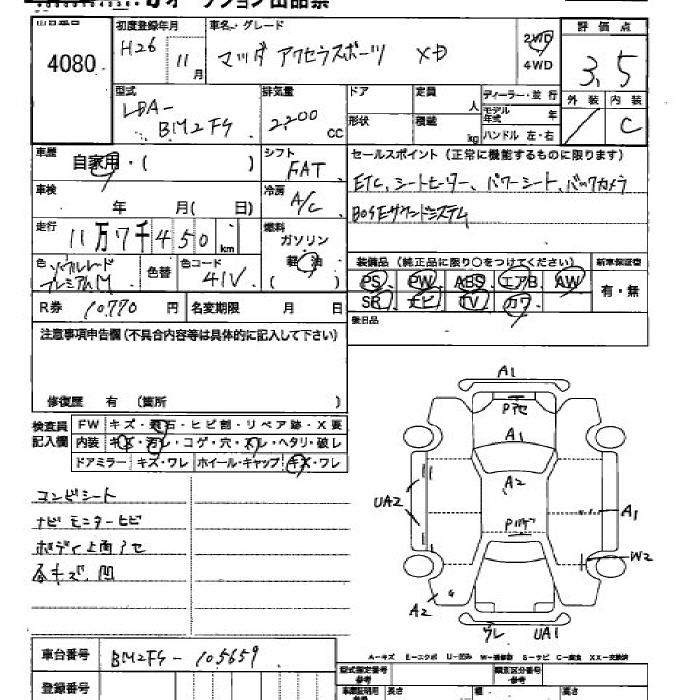 オークション出品票
4080
初度登録年月
H26 11月
車名・グレード
マツダ アクセラスポーツ XD
2WD
4WD
評価点
3.5
型式
LDA-
BM2FS
排気量
2200 cc
ドア
定員 人
形状
積載 kg
ディーラー・並行
モデル年式 年
ハンドル 左・右
外装
内装
C
車歴
自家用・( )
シフト
FAT
セールスポイント（正常に機能するものに限ります）
ETC、シートヒーター、パワーシート、バックカメラ
BOSEサウンドシステム
車検
年 月( 日)
冷房
A/C
走行
11万7千450 km
燃料
ガソリン
軽油
( )
色
ソウルレッド
プレミアムM
色替
色コード
41V
装備品（純正品に限り○をつけてください）
新車保証書
PS PW ABS エアB AW
SR ナビ TV カワ
有・無
R券 10770 円
名変期限 月 日
後日品
注意事項申告欄（不具合内容等は具体的に記入して下さい）
修復歴 有 （箇所 ）
検査員
記入欄
FW キズ・飛石・ヒビ割・リペア跡・X要
内装 キズ・汚レ・コゲ・穴・スレ・ヘタリ・破レ
ドアミラー キズ・ワレ ホイール・キャップ キズ・ワレ
コンビシート
ナビモニターヒビ
ボディ上面アセ
各キズ、凹
A1
Pアセ
A1
A2
UA2
A1
W2
A2
ワレ UA1
A-キズ E-エクボ U-凹ミ W-補修跡 S-サビ C-腐食 XX-交換済
車台番号
BM2FS-105659
登録番号
型式指定番号
参考
類別区分番号
参考
車庫証明用
参考
長さ
幅
高さ